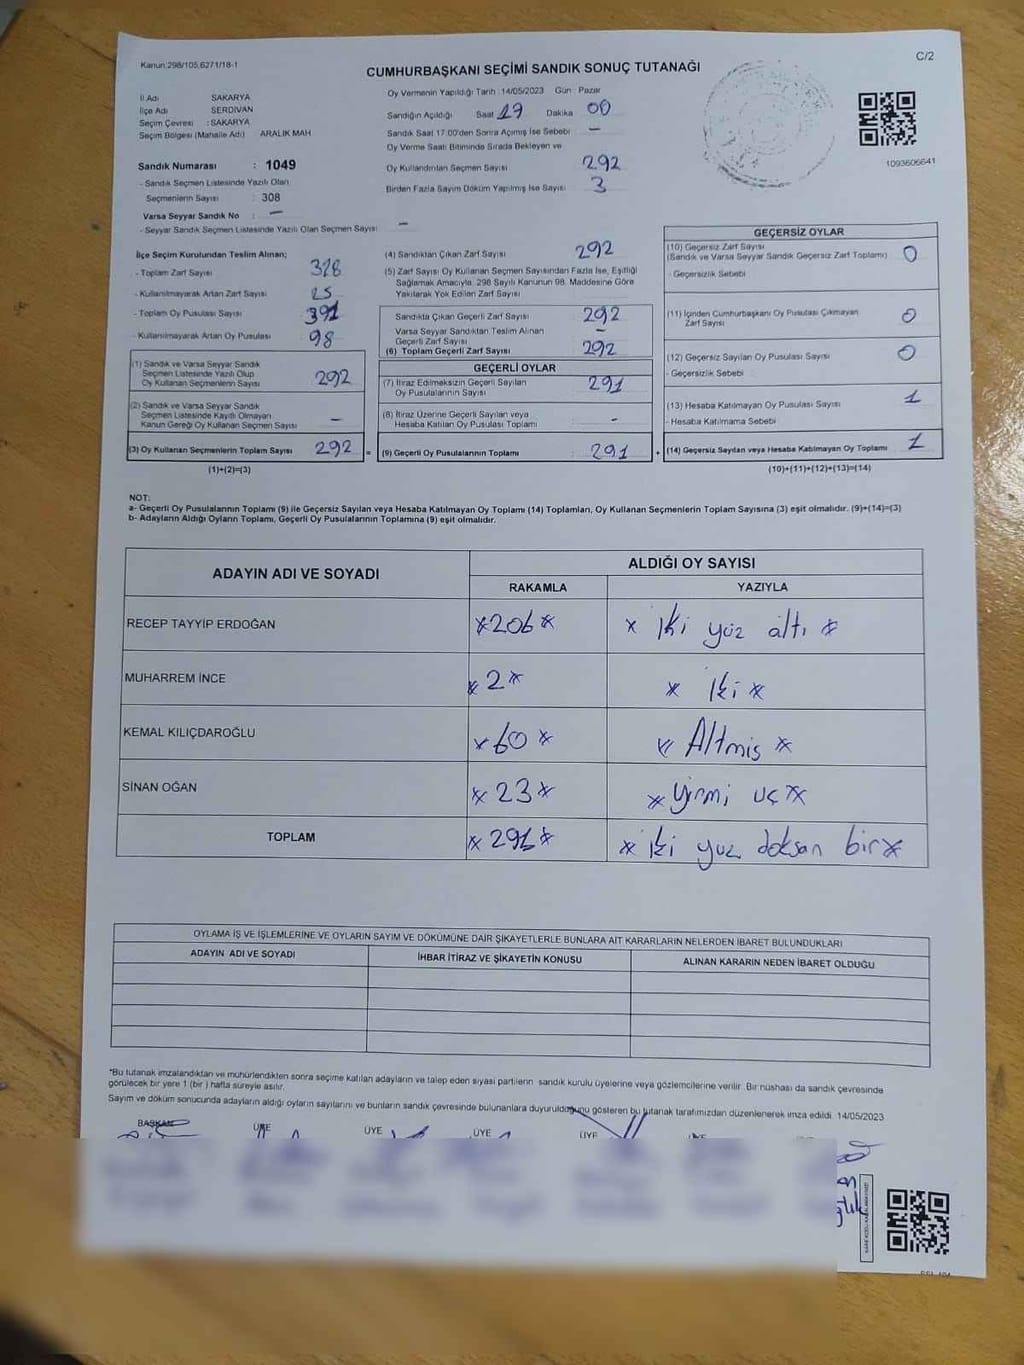 Kanun:298/105,6271/18-1
C/2
CUMHURBAŞKANI SEÇİMİ SANDIK SONUÇ TUTANAĞI
İl Adı SAKARYA
İlçe Adı SERDİVAN
Seçim Çevresi : SAKARYA
Seçim Bölgesi (Mahalle Adı) ARALIK MAH
Sandık Numarası : 1049
- Sandık Seçmen Listesinde Yazılı Olan
Seçmenlerin Sayısı : 308
Varsa Seyyar Sandık No : -
- Seyyar Sandık Seçmen Listesinde Yazılı Olan Seçmen Sayısı -
Oy Vermenin Yapıldığı Tarih :14/05/2023 Gün : Pazar
Sandığın Açıldığı Saat 19 Dakika 00
Sandık Saat 17:00'den Sonra Açımış İse Sebebi -
Oy Verme Saati Bitiminde Sırada Bekleyen ve
Oy Kullandırılan Seçmen Sayısı 292
Birden Fazla Sayım Döküm Yapılmış İse Sayısı 3
1093606641
İlçe Seçim Kurulundan Teslim Alınan;
- Toplam Zarf Sayısı
- Kullanılmayarak Artan Zarf Sayısı
- Toplam Oy Pusulası Sayısı 391
- Kullanılmayarak Artan Oy Pusulası 98
(1) Sandık ve Varsa Seyyar Sandık
Seçmen Listesinde Yazılı Olup
Oy Kullanan Seçmenlerin Sayısı 292
(2) Sandık ve Varsa Seyyar Sandık
Seçmen Listesinde Kayıtlı Olmayan
Kanun Gereği Oy Kullanan Seçmen Sayısı -
(3) Oy Kullanan Seçmenlerin Toplam Sayısı 292 =
(1)+(2)=(3)
(4) Sandıktan Çıkan Zarf Sayısı 292
(5) Zarf Sayısı Oy Kullanan Seçmen Sayısından Fazla İse, Eşitliği
Sağlamak Amacıyla, 298 Sayılı Kanunun 98. Maddesine Göre
Yakılarak Yok Edilen Zarf Sayısı
Sandıkta Çıkan Geçerli Zarf Sayısı 292
Varsa Seyyar Sandıktan Teslim Alınan
Geçerli Zarf Sayısı -
(6) Toplam Geçerli Zarf Sayısı 292
GEÇERLİ OYLAR
(7) İtiraz Edilmeksizin Geçerli Sayılan
Oy Pusulalarının Sayısı 291
(8) İtiraz Üzerine Geçerli Sayılan veya
Hesaba Katılan Oy Pusulası Toplamı : -
(9) Geçerli Oy Pusulalarının Toplamı : 291 +
GEÇERSİZ OYLAR
(10) Geçersiz Zarf Sayısı
(Sandık ve Varsa Seyyar Sandık Geçersiz Zarf Toplamı) 0
- Geçersizlik Sebebi
(11) İçinden Cumhurbaşkanı Oy Pusulası Çıkmayan
Zarf Sayısı 0
(12) Geçersiz Sayılan Oy Pusulası Sayısı 0
- Geçersizlik Sebebi
(13) Hesaba Katılmayan Oy Pusulası Sayısı 1
- Hesaba Katılmama Sebebi
(14) Geçersiz Sayılan veya Hesaba Katılmayan Oy Toplamı 1
(10)+(11)+(12)+(13)=(14)
NOT:
a- Geçerli Oy Pusulalarının Toplamı (9) ile Geçersiz Sayılan veya Hesaba Katılmayan Oy Toplamı (14) Toplamları, Oy Kullanan Seçmenlerin Toplam Sayısına (3) eşit olmalıdır. (9)+(14)=(3)
b- Adayların Aldığı Oyların Toplamı, Geçerli Oy Pusulalarının Toplamına (9) eşit olmalıdır.
ADAYIN ADI VE SOYADI
ALDIĞI OY SAYISI
RAKAMLA YAZIYLA
RECEP TAYYİP ERDOĞAN *206* * iki yüz altı *
MUHARREM İNCE *2* * iki *
KEMAL KILIÇDAROĞLU *60* * Altmiş *
SİNAN OĞAN *23* * yirmi uç *
TOPLAM *291* * iki yuz doksan bir *
OYLAMA İŞ VE İŞLEMLERİNE VE OYLARIN SAYIM VE DÖKÜMÜNE DAİR ŞİKAYETLERLE BUNLARA AİT KARARLARIN NELERDEN İBARET BULUNDUKLARI
ADAYIN ADI VE SOYADI İHBAR İTİRAZ VE ŞİKAYETİN KONUSU ALINAN KARARIN NEDEN İBARET OLDUĞU
*Bu tutanak imzalandıktan ve mühürlendikten sonra seçime katılan adayların ve talep eden siyasi partilerin sandık kurulu üyelerine veya gözlemcilerine verilir. Bir nüshası da sandık çevresinde
görülecek bir yere 1 (bir ) hafta süreyle asılır.
Sayım ve döküm sonucunda adayların aldığı oyların sayılarını ve bunların sandık çevresinde bulunanlara duyurulduğunu gösteren bu tutanak tarafımızdan düzenlenerek imza edildi. 14/05/2023
BAŞKAN ÜYE ÜYE ÜYE ÜYE